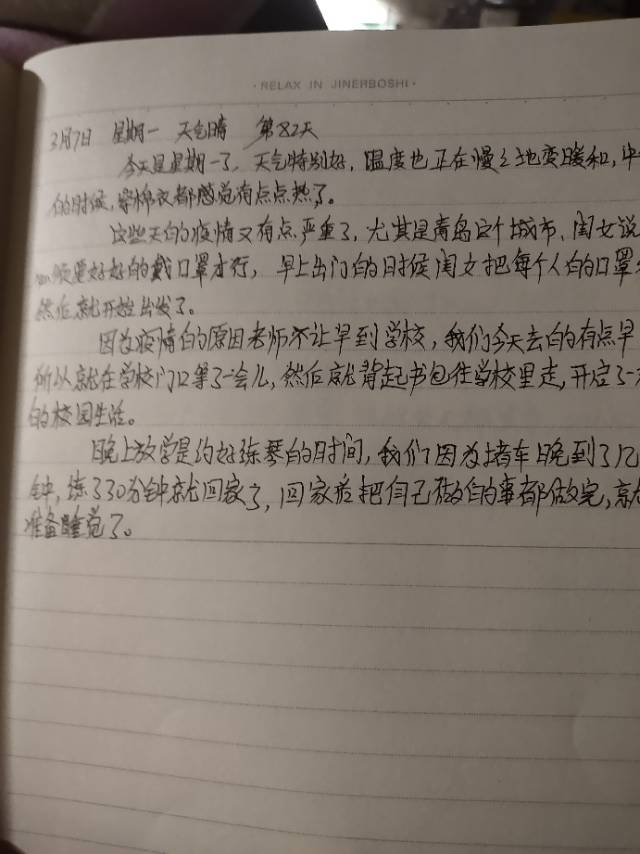 · RELAX IN JINERBOSHI ·
3月7日 星期一 天气晴 第82天
今天是星期一了，天气特别好，温度也正在慢慢地变暖和，中
的时候，穿棉衣都感觉有点点热了。
这些天的疫情又有点严重了，尤其是青岛这个城市，闺女说
必须要好好的戴口罩才行，早上出门的时候闺女把每个人的口罩
然后就开始出发了。
因为疫情的原因老师不让早到学校，我们今天去的有点早
所以就在学校门口等了一会儿，然后就背起书包往学校里走，开启了一
的校园生活。
晚上放学是约好练琴的时间，我们因为堵车晚到了几
钟，练了30分钟就回家了，回家后把自己做的事都做完，就
准备睡觉了。